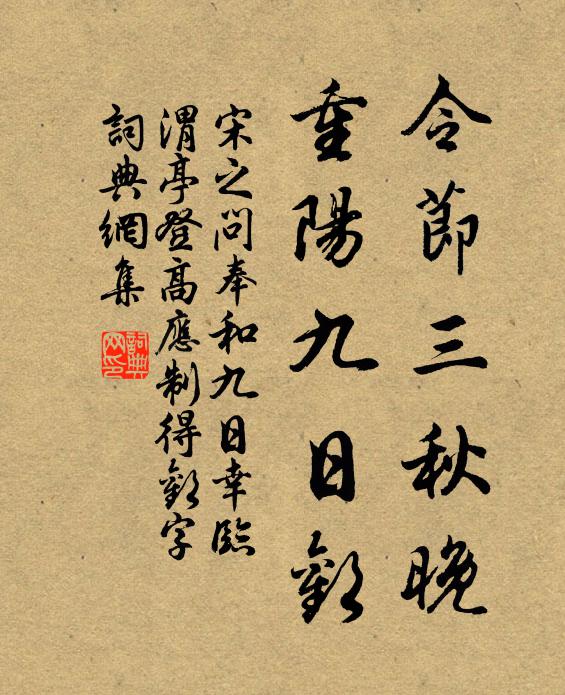 令節三秋晚
重陽九日歡
宋之问奉和九日幸臨
渭亭登高應制得歡字
詞典網集
詞典网印